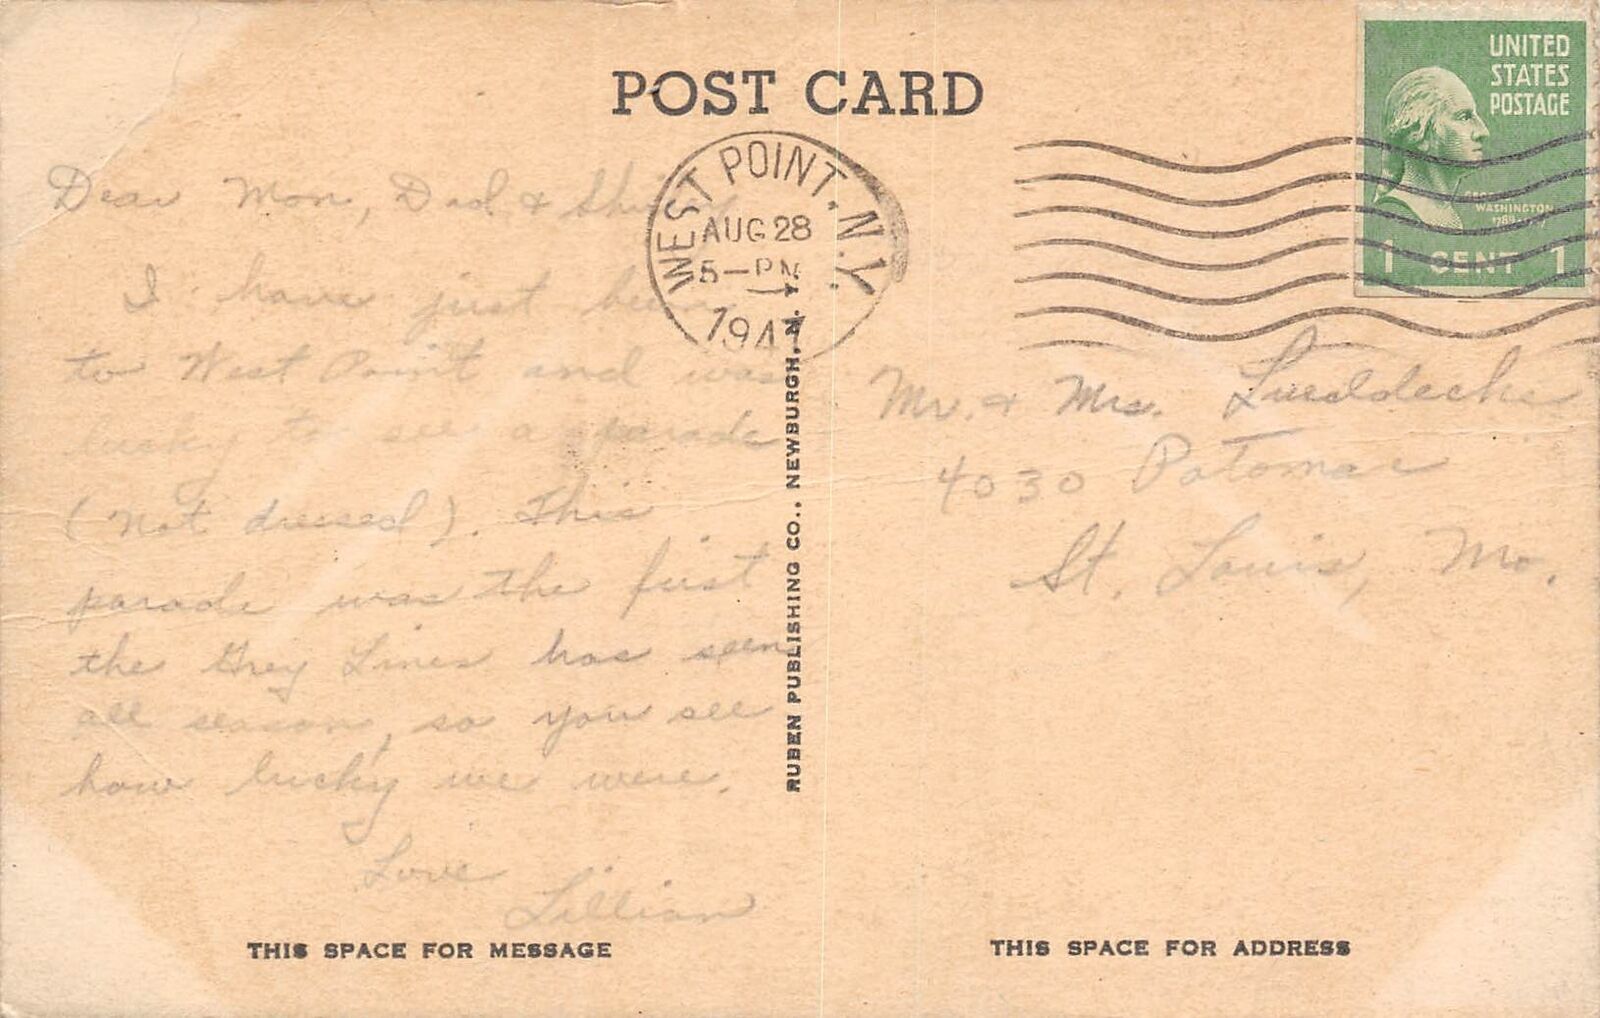 POST CARD
UNITED
STATES
POSTAGE
WASHINGTON
1 CENT 1
WEST POINT, N.Y.
AUG 28
5-PM
1947
Dear Mom, Dad &
I have just been
to West Point and was
lucky to see a parade
(not dressed). This
parade was the first
the Grey Lines has seen
all season, so you see
how lucky we were.
Love
Lillian
Mr. & Mrs. Lueddecke
4030 Potomac
St. Louis, Mo.
RUBEN PUBLISHING CO., NEWBURGH, N. Y.
THIS SPACE FOR MESSAGE
THIS SPACE FOR ADDRESS